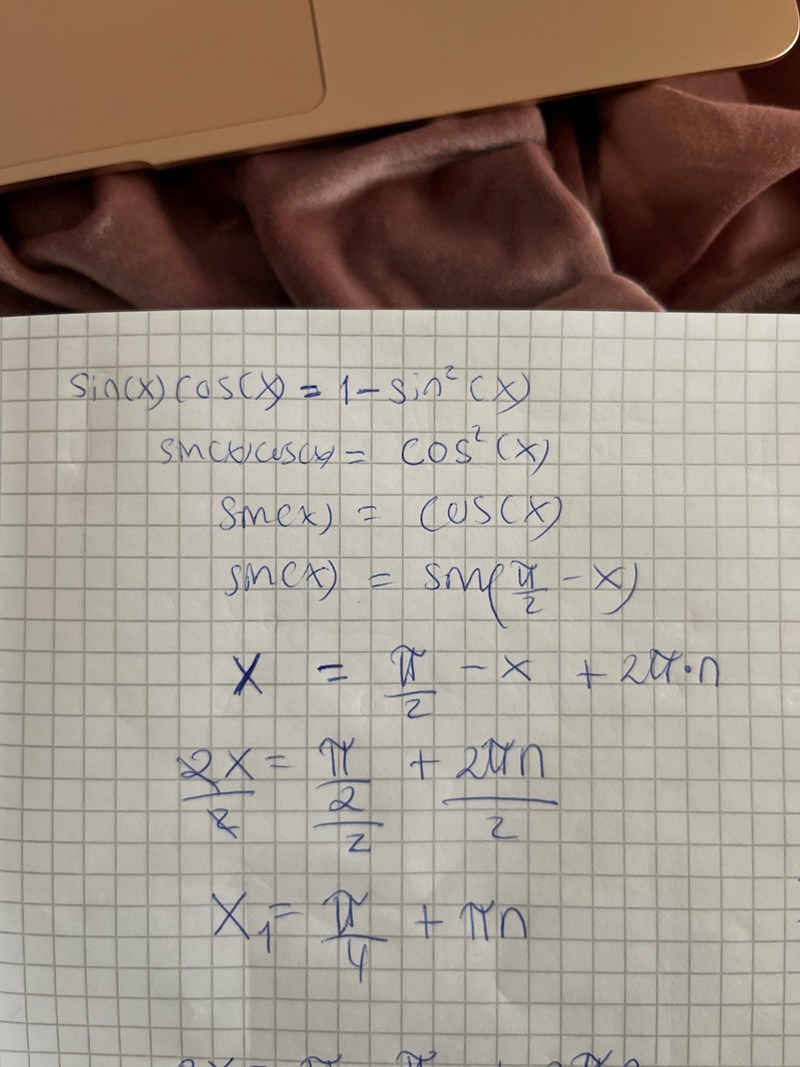 sin(x) cos(x) = 1 - sin²(x)
sin(x)cos(x) = cos²(x)
sin(x) = cos(x)
sin(x) = sin(π/2 - x)
x = π/2 - x + 2π·n
2x/2 = π/2/2 + 2πn/2
x₁ = π/4 + πn